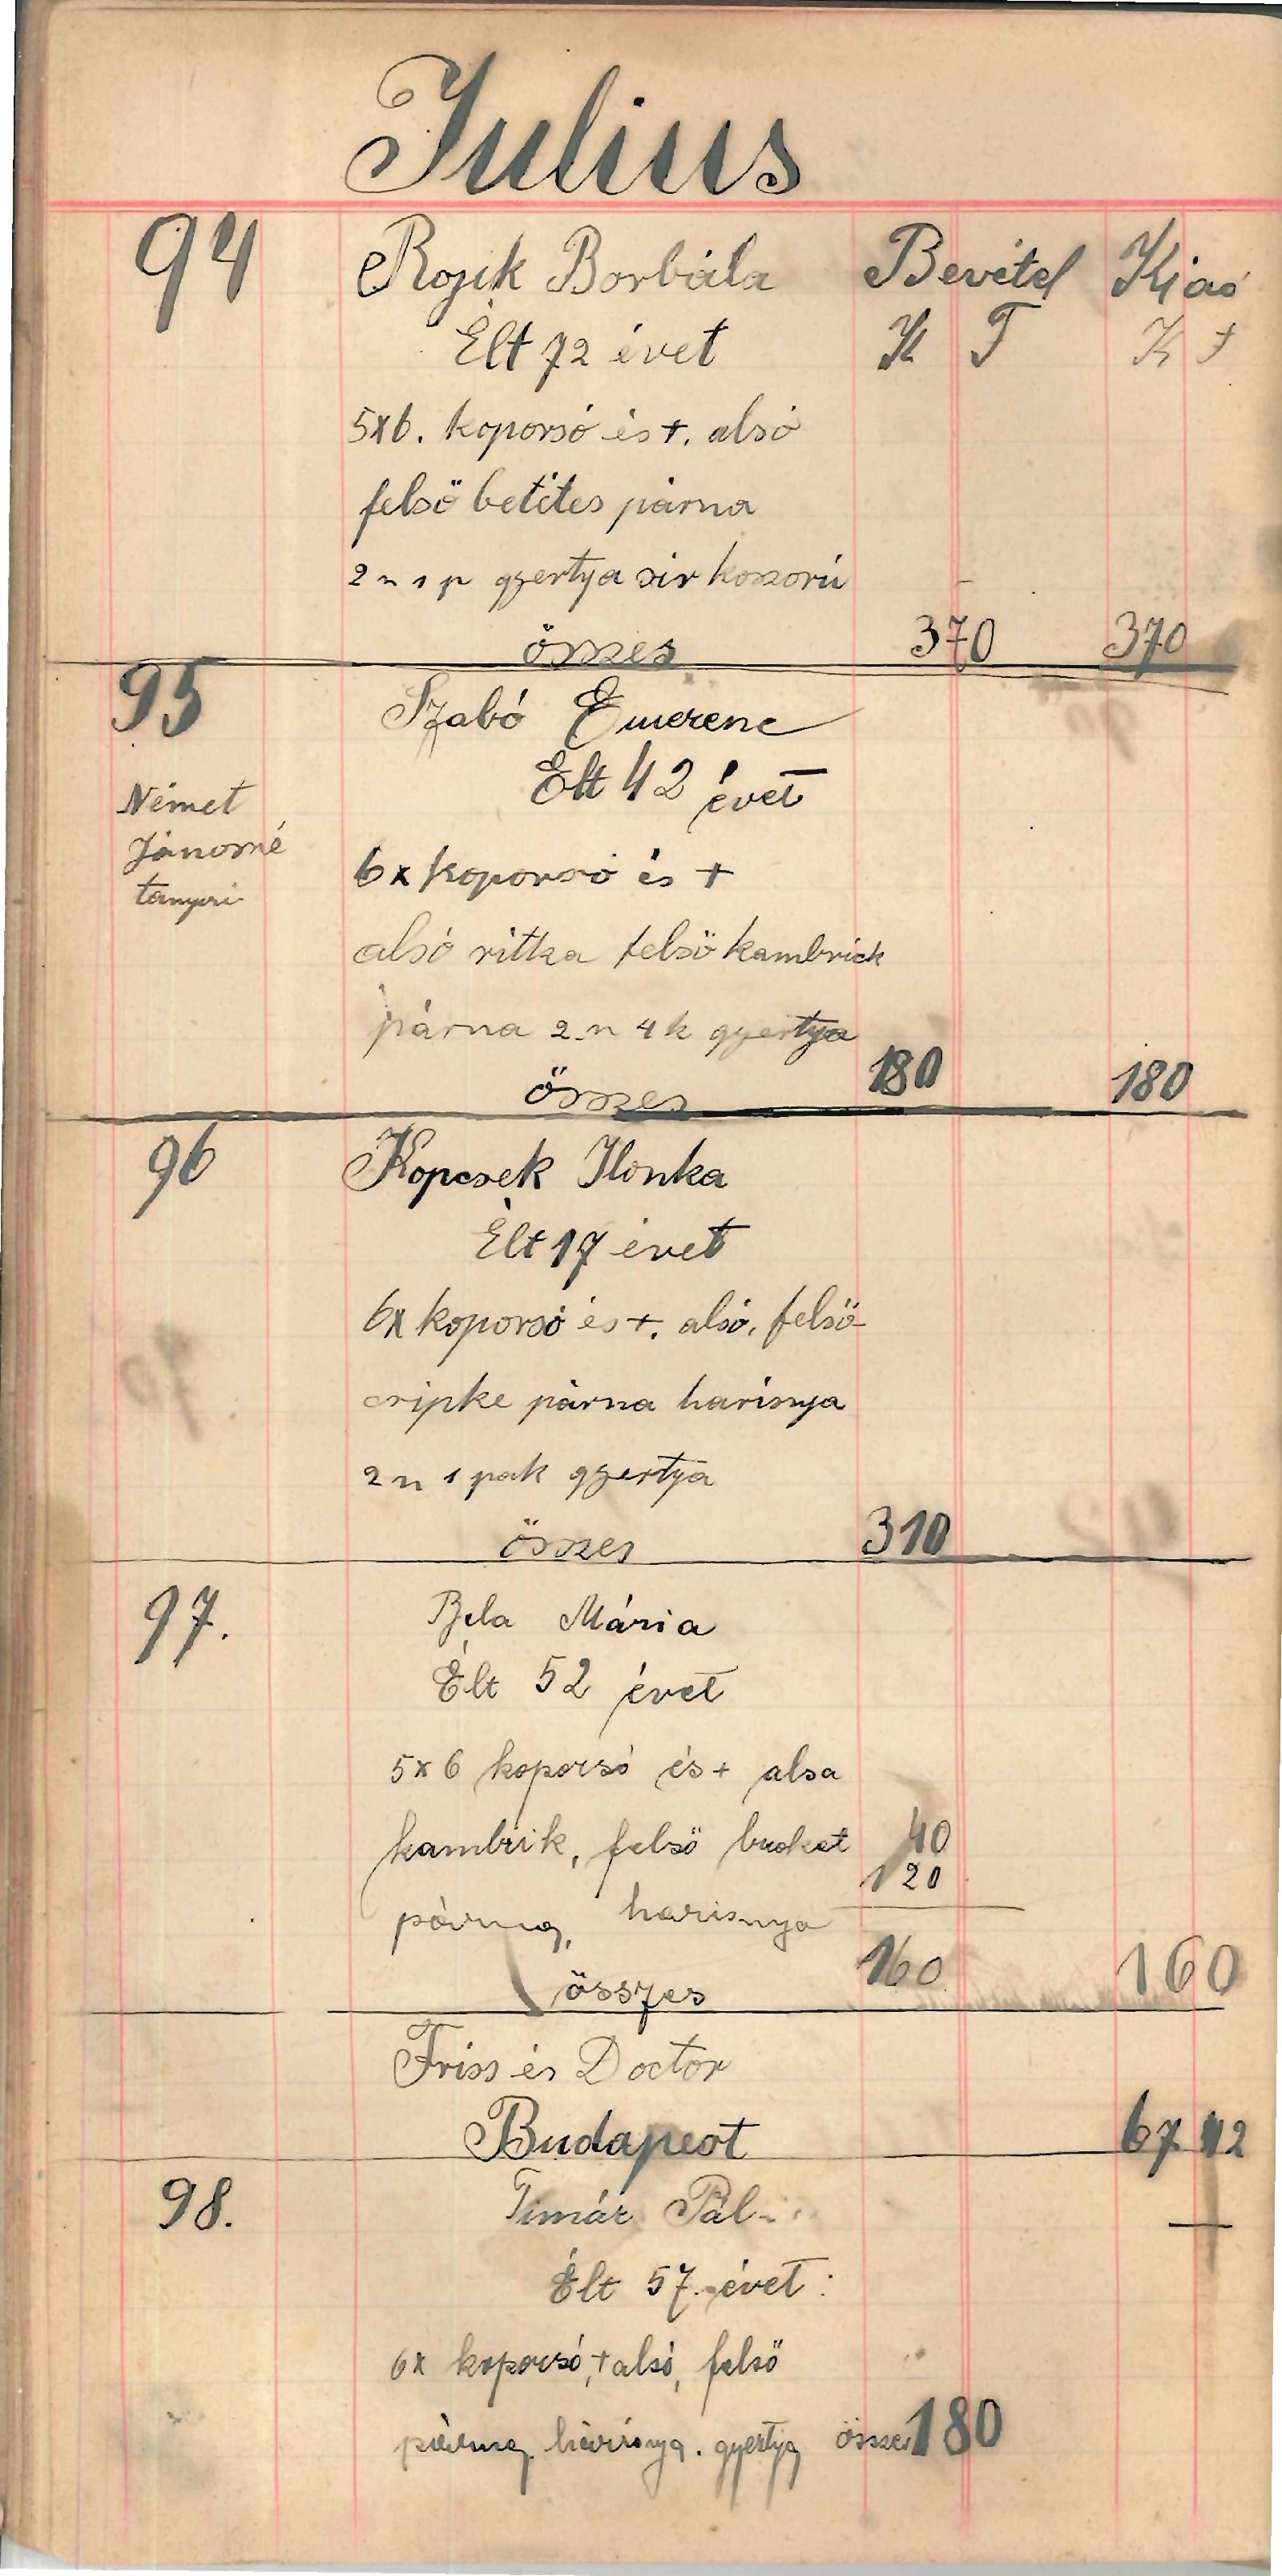 Julius
94 Rojik Borbála Bevétel Kiaó
Élt 72 évet K F K f
5x6. koporsó és +. alsó
felsö betétes párna
2 n 1 p gyertya sir koszorú
összes 370 370
95 Szabó Emerenc
Élt 42 évet
Német
Jánosné
tanyai
6x koporsó és +
alsó ritka felsö kambrick
párna 2 n 4 k gyertya
összes 180 180
96 Kopcsek Ilonka
Élt 17 évet
6x koporsó és +. alsó, felsö
csipke párna harisnya
2 n 1 pak gyertya
összes 310
97. Béla Mária
Élt 52 évet
5x6 koporsó és + alsa
kambrik, felsö buket 40
120
párna, harisnya
összes 160 160
Friss és Doctor
Budapest 67 42
98. Timár Pál
Élt 57. évet
6x koporsó, + alsó, felsö
párna, harisnya. gyertya össze 180